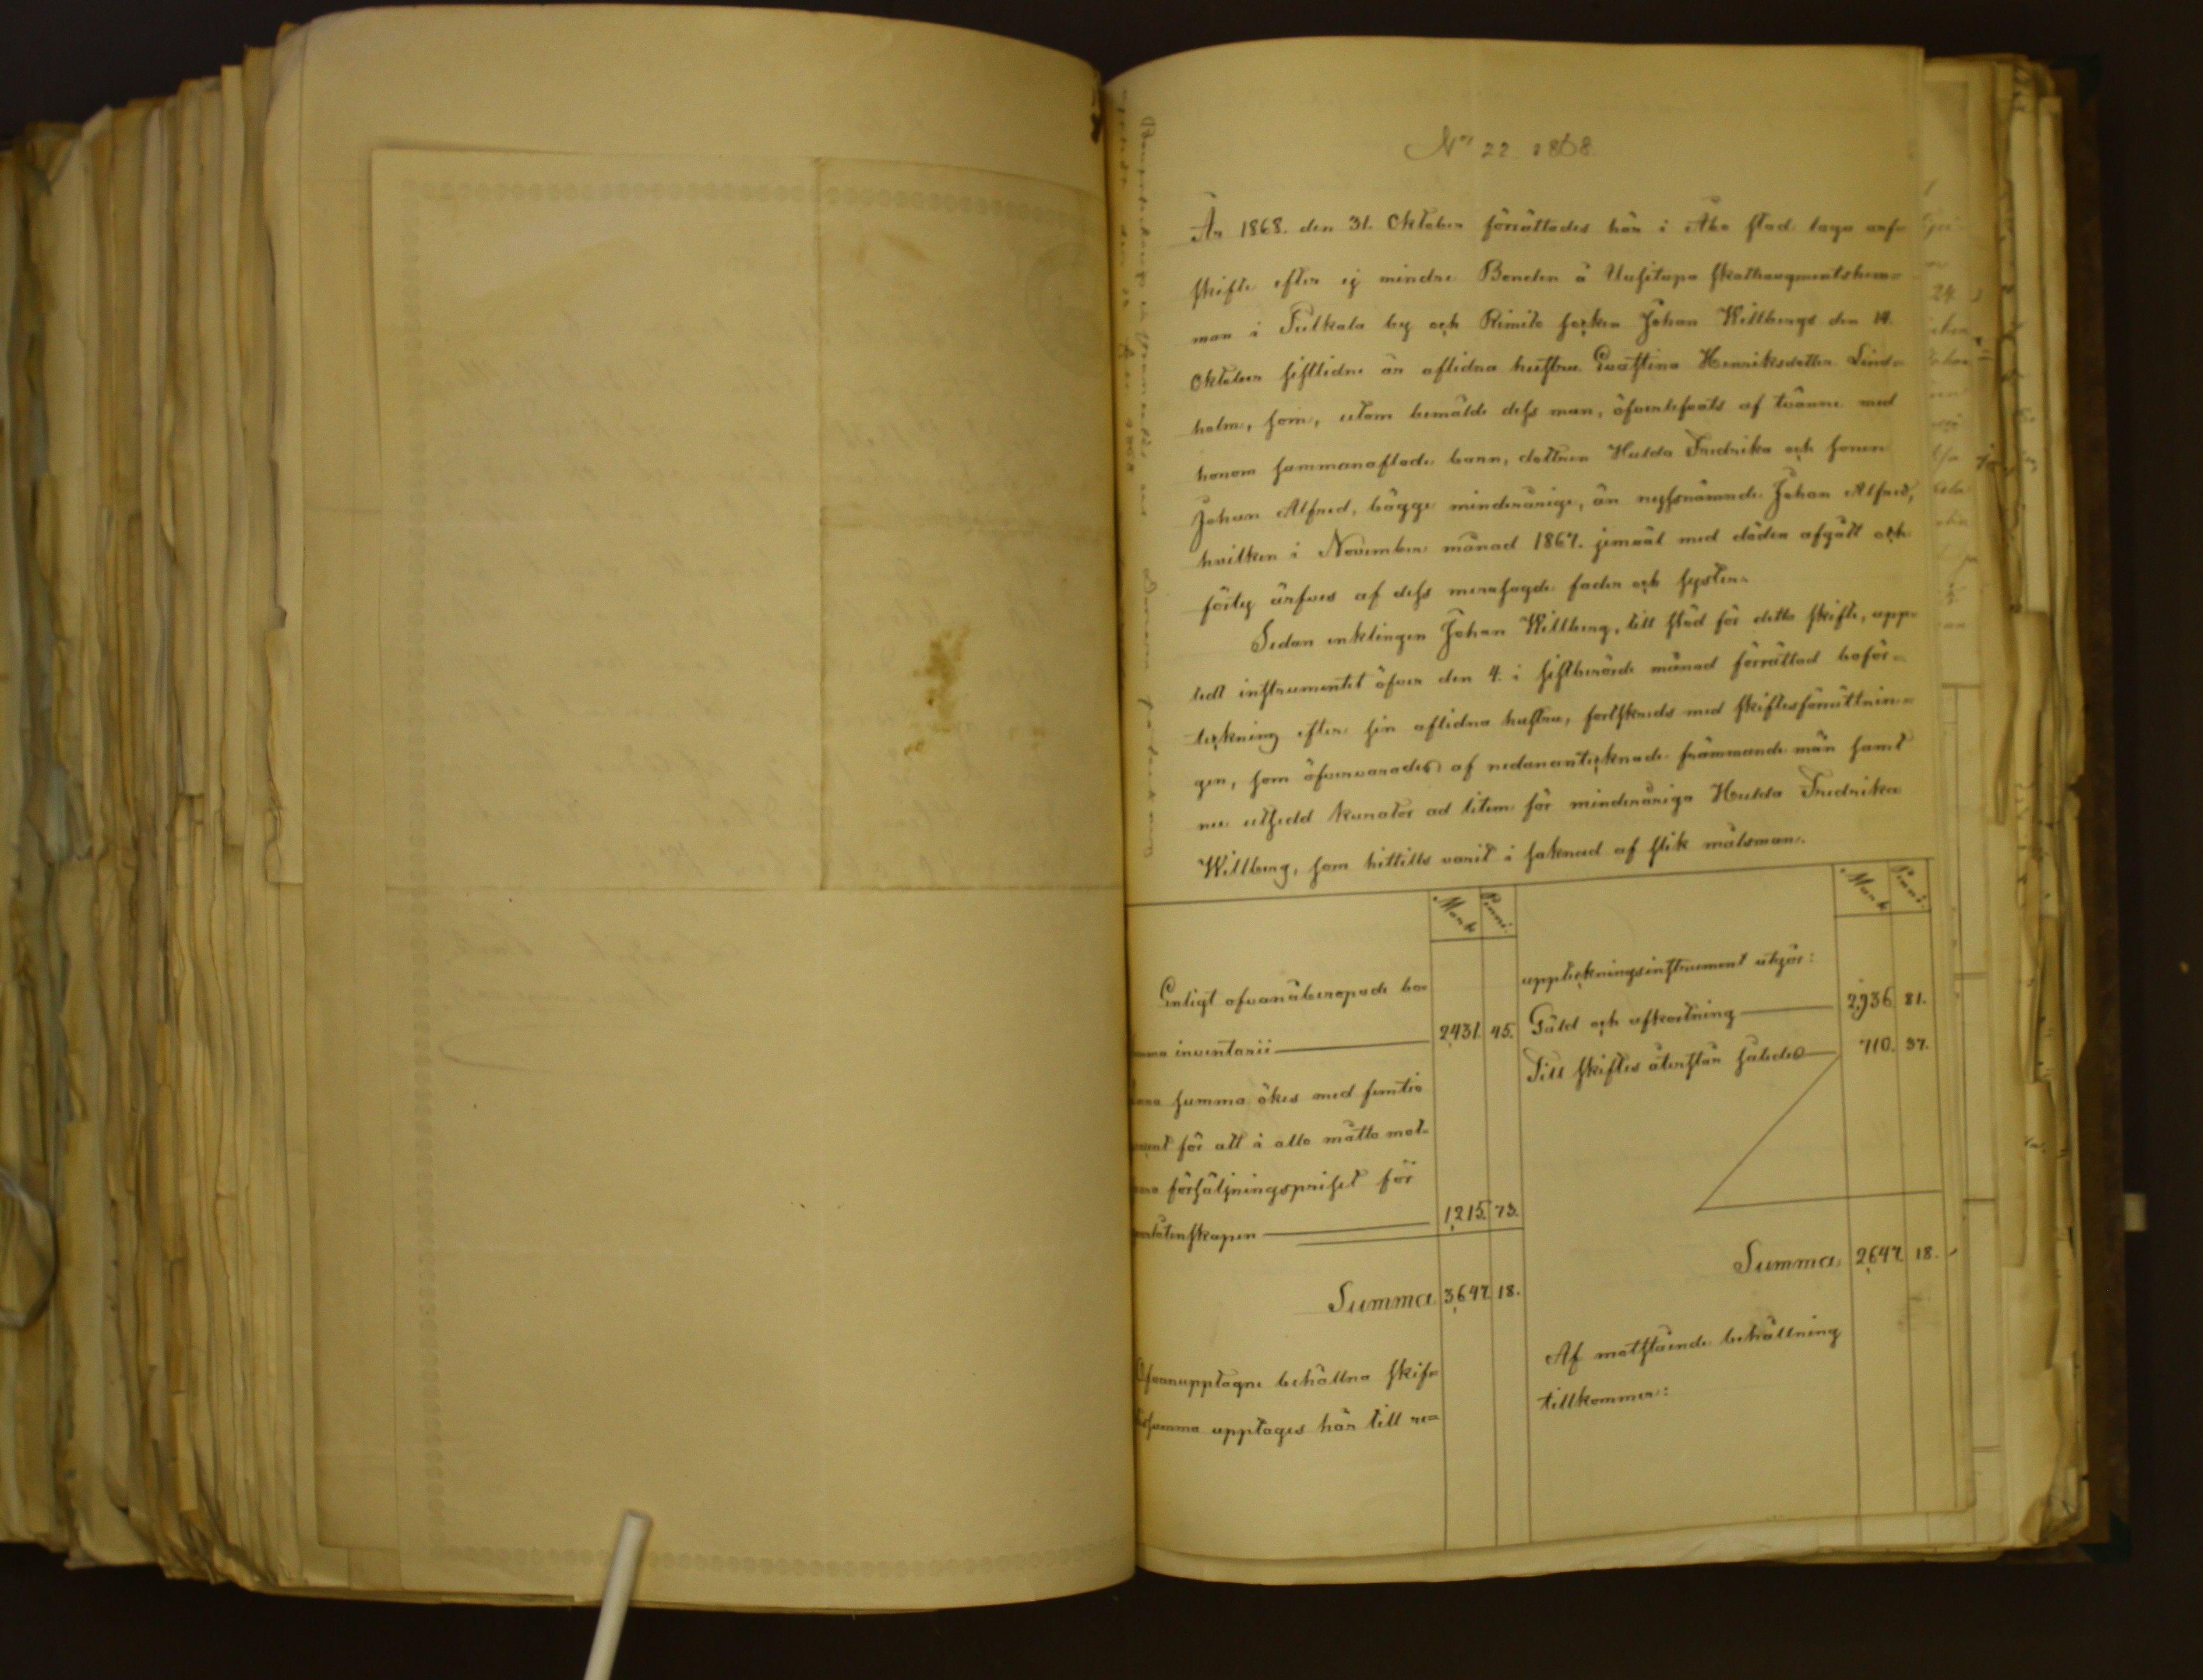 No 22 1868.
År 1868. den 31. Oktober förrättades här i Åbo stad laga arf-
skifte efter ej mindre Bonden å Uusitupa skatteaugmentshem-
man i Tulkala by och Rimito socken Johan Willbergs den 14.
Oktober sistlidne år aflidna hustru Evastina Henriksdotter Lind-
holm, som, utom bemälde dess man, öfverlefvats af tvänne med
honom sammanaflade barn, dottren Hulda Fredrika och sonen
Johan Alfred, bägge minderårige, än nyssnämnde Johan Alfred,
hvilken i November månad 1867. jemväl med döden afgått och
förty ärfves af dess merasagde fader och syster.
Sedan enklingen Johan Willberg, till stöd för detta skifte, upp-
tedt instrumentet öfver den 4. i sistberörde månad förrättad boför-
teckning efter sin aflidna hustru, fortskreds med skiftesförrättnin-
gen, som öfvervarades af nedanantecknade främmande män samt
nu utsedd kurator ad litem för minderåriga Hulda Fredrika
Willberg, som hittills varit i saknad af slik målsman.
Mark Penni. Mark Penni.
Enligt ofvanåberopade bo-
uppteckningsinstrument utgör:
summa inventarii 2,431. 45.
Gäld och afkortning 2,936 81.
Till skiftes återstår således 710. 37.
summa ökes med femtio
för att i allo måtto mot-
försäljningspriset för
qvarlåtenskapen 1,215. 73.
Summa 3,647. 18.
Summa 2,647 18.
Ofvanupptagne behållna skif-
tessumma upptages här till re-
Af motstående behållning
tillkommer: